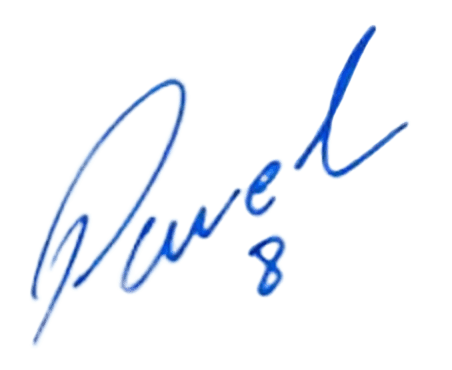 Pavel
8